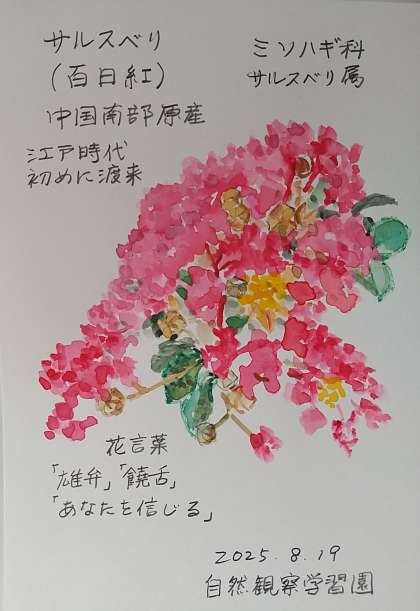 サルスベリ
(百日紅)
中国南部原産
江戸時代
初めに渡来
ミソハギ科
サルスベリ属
花言葉
「雄弁」「饒舌」
「あなたを信じる」
2025.8.19
自然観察学習園